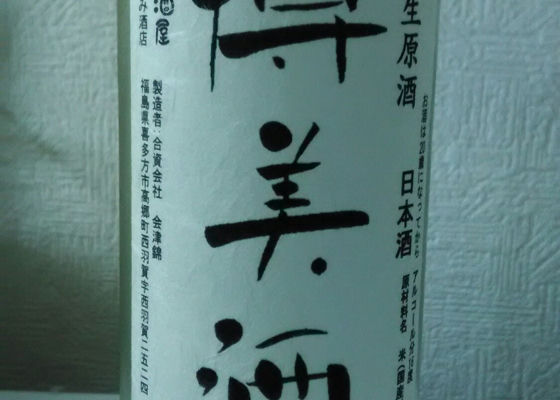 生原酒 日本酒
お酒は20歳になってから アルコール分
原材料名 米(国産
美酒
酒屋
み酒店
製造者:合資会社 会津錦
福島県喜多方市高郷町西羽賀字西羽賀二五二四